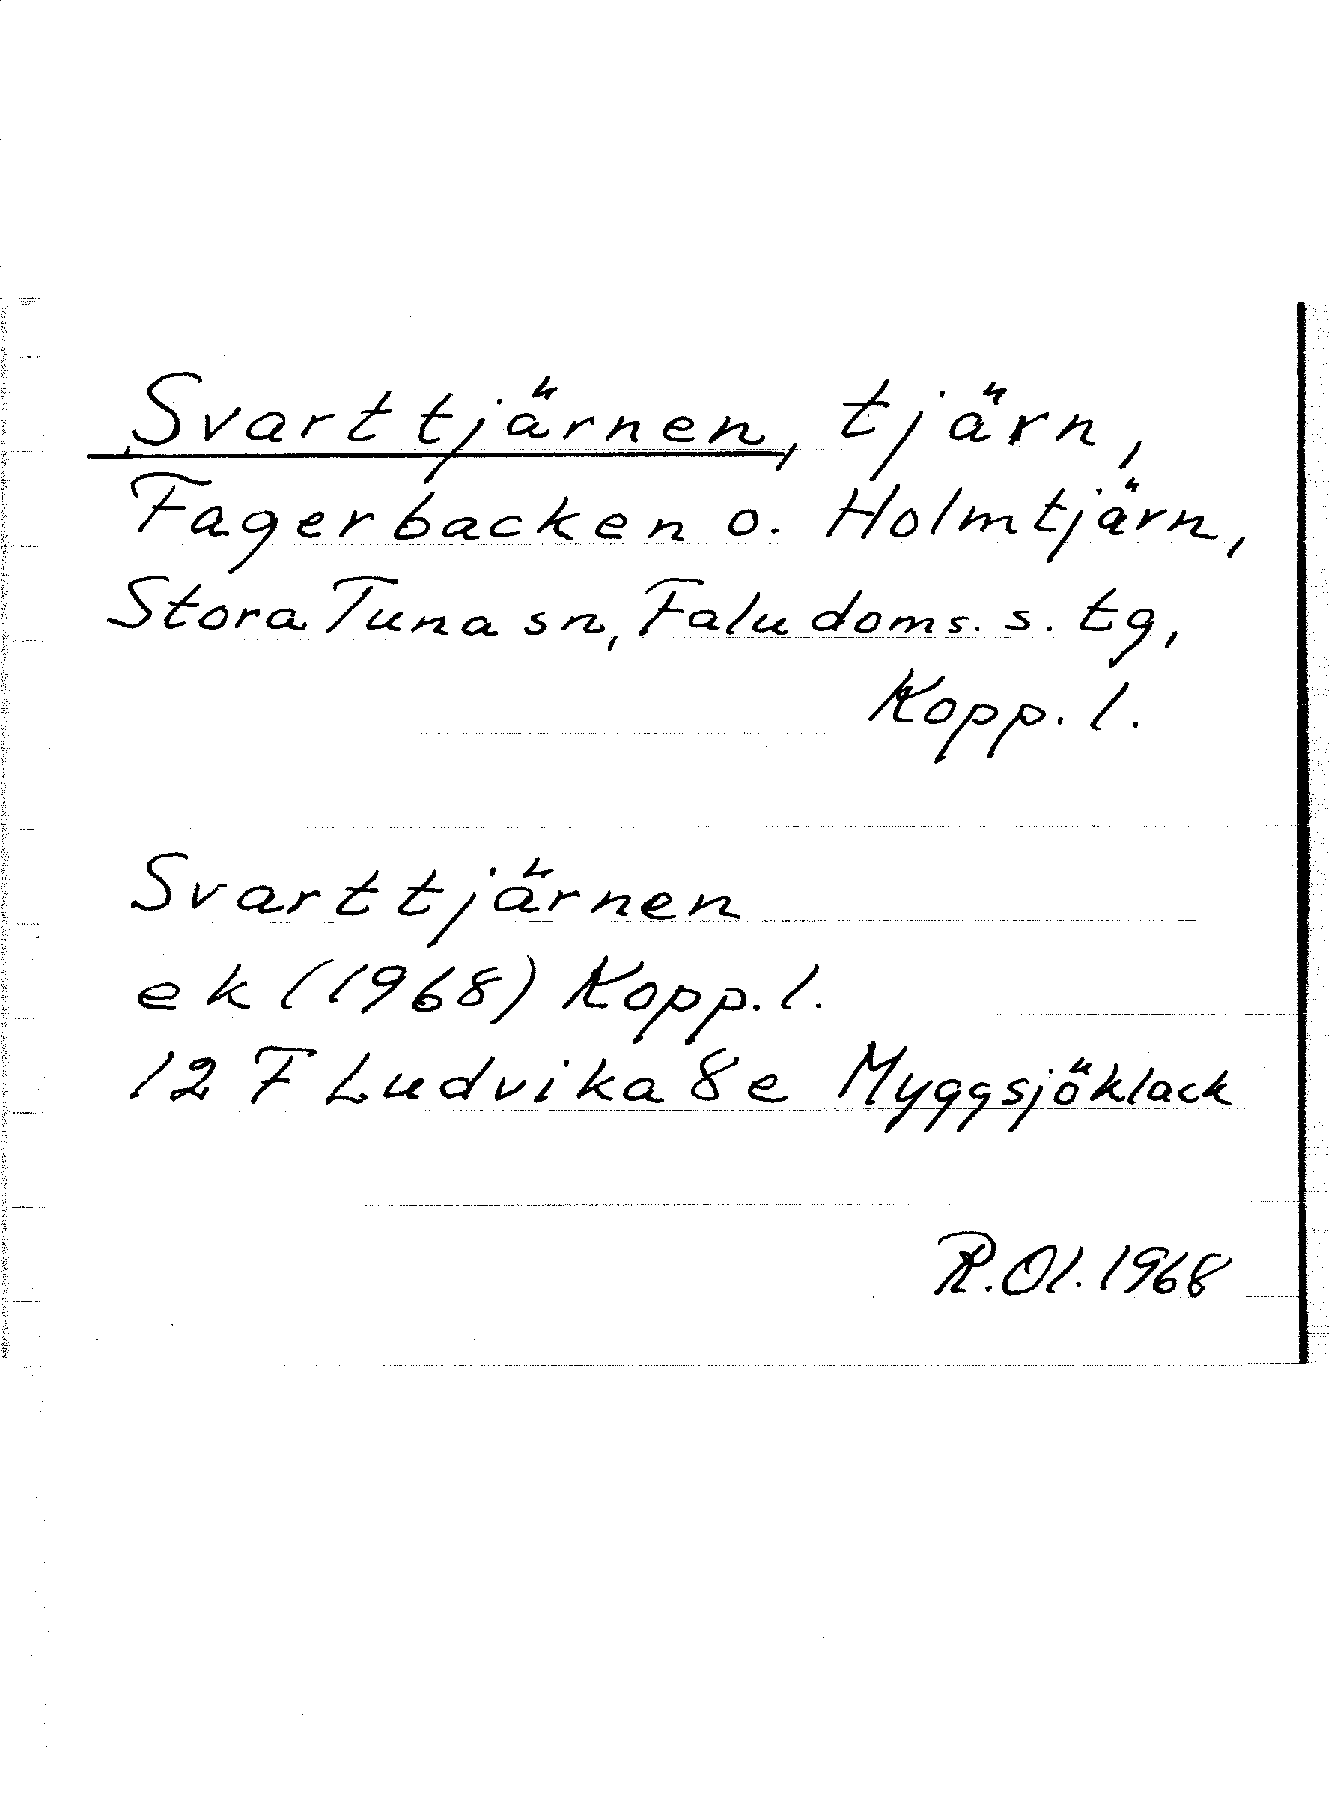 Svarttjärnen, tjärn,
Fagerbacken o. Holmtjärn,
Stora Tuna sn, Falu doms. s. tg,
Kopp. l.
Svarttjärnen
ek (1968) Kopp. l.
12 F Ludvika 8 e Myggsjöklack
R. Ol. 1968